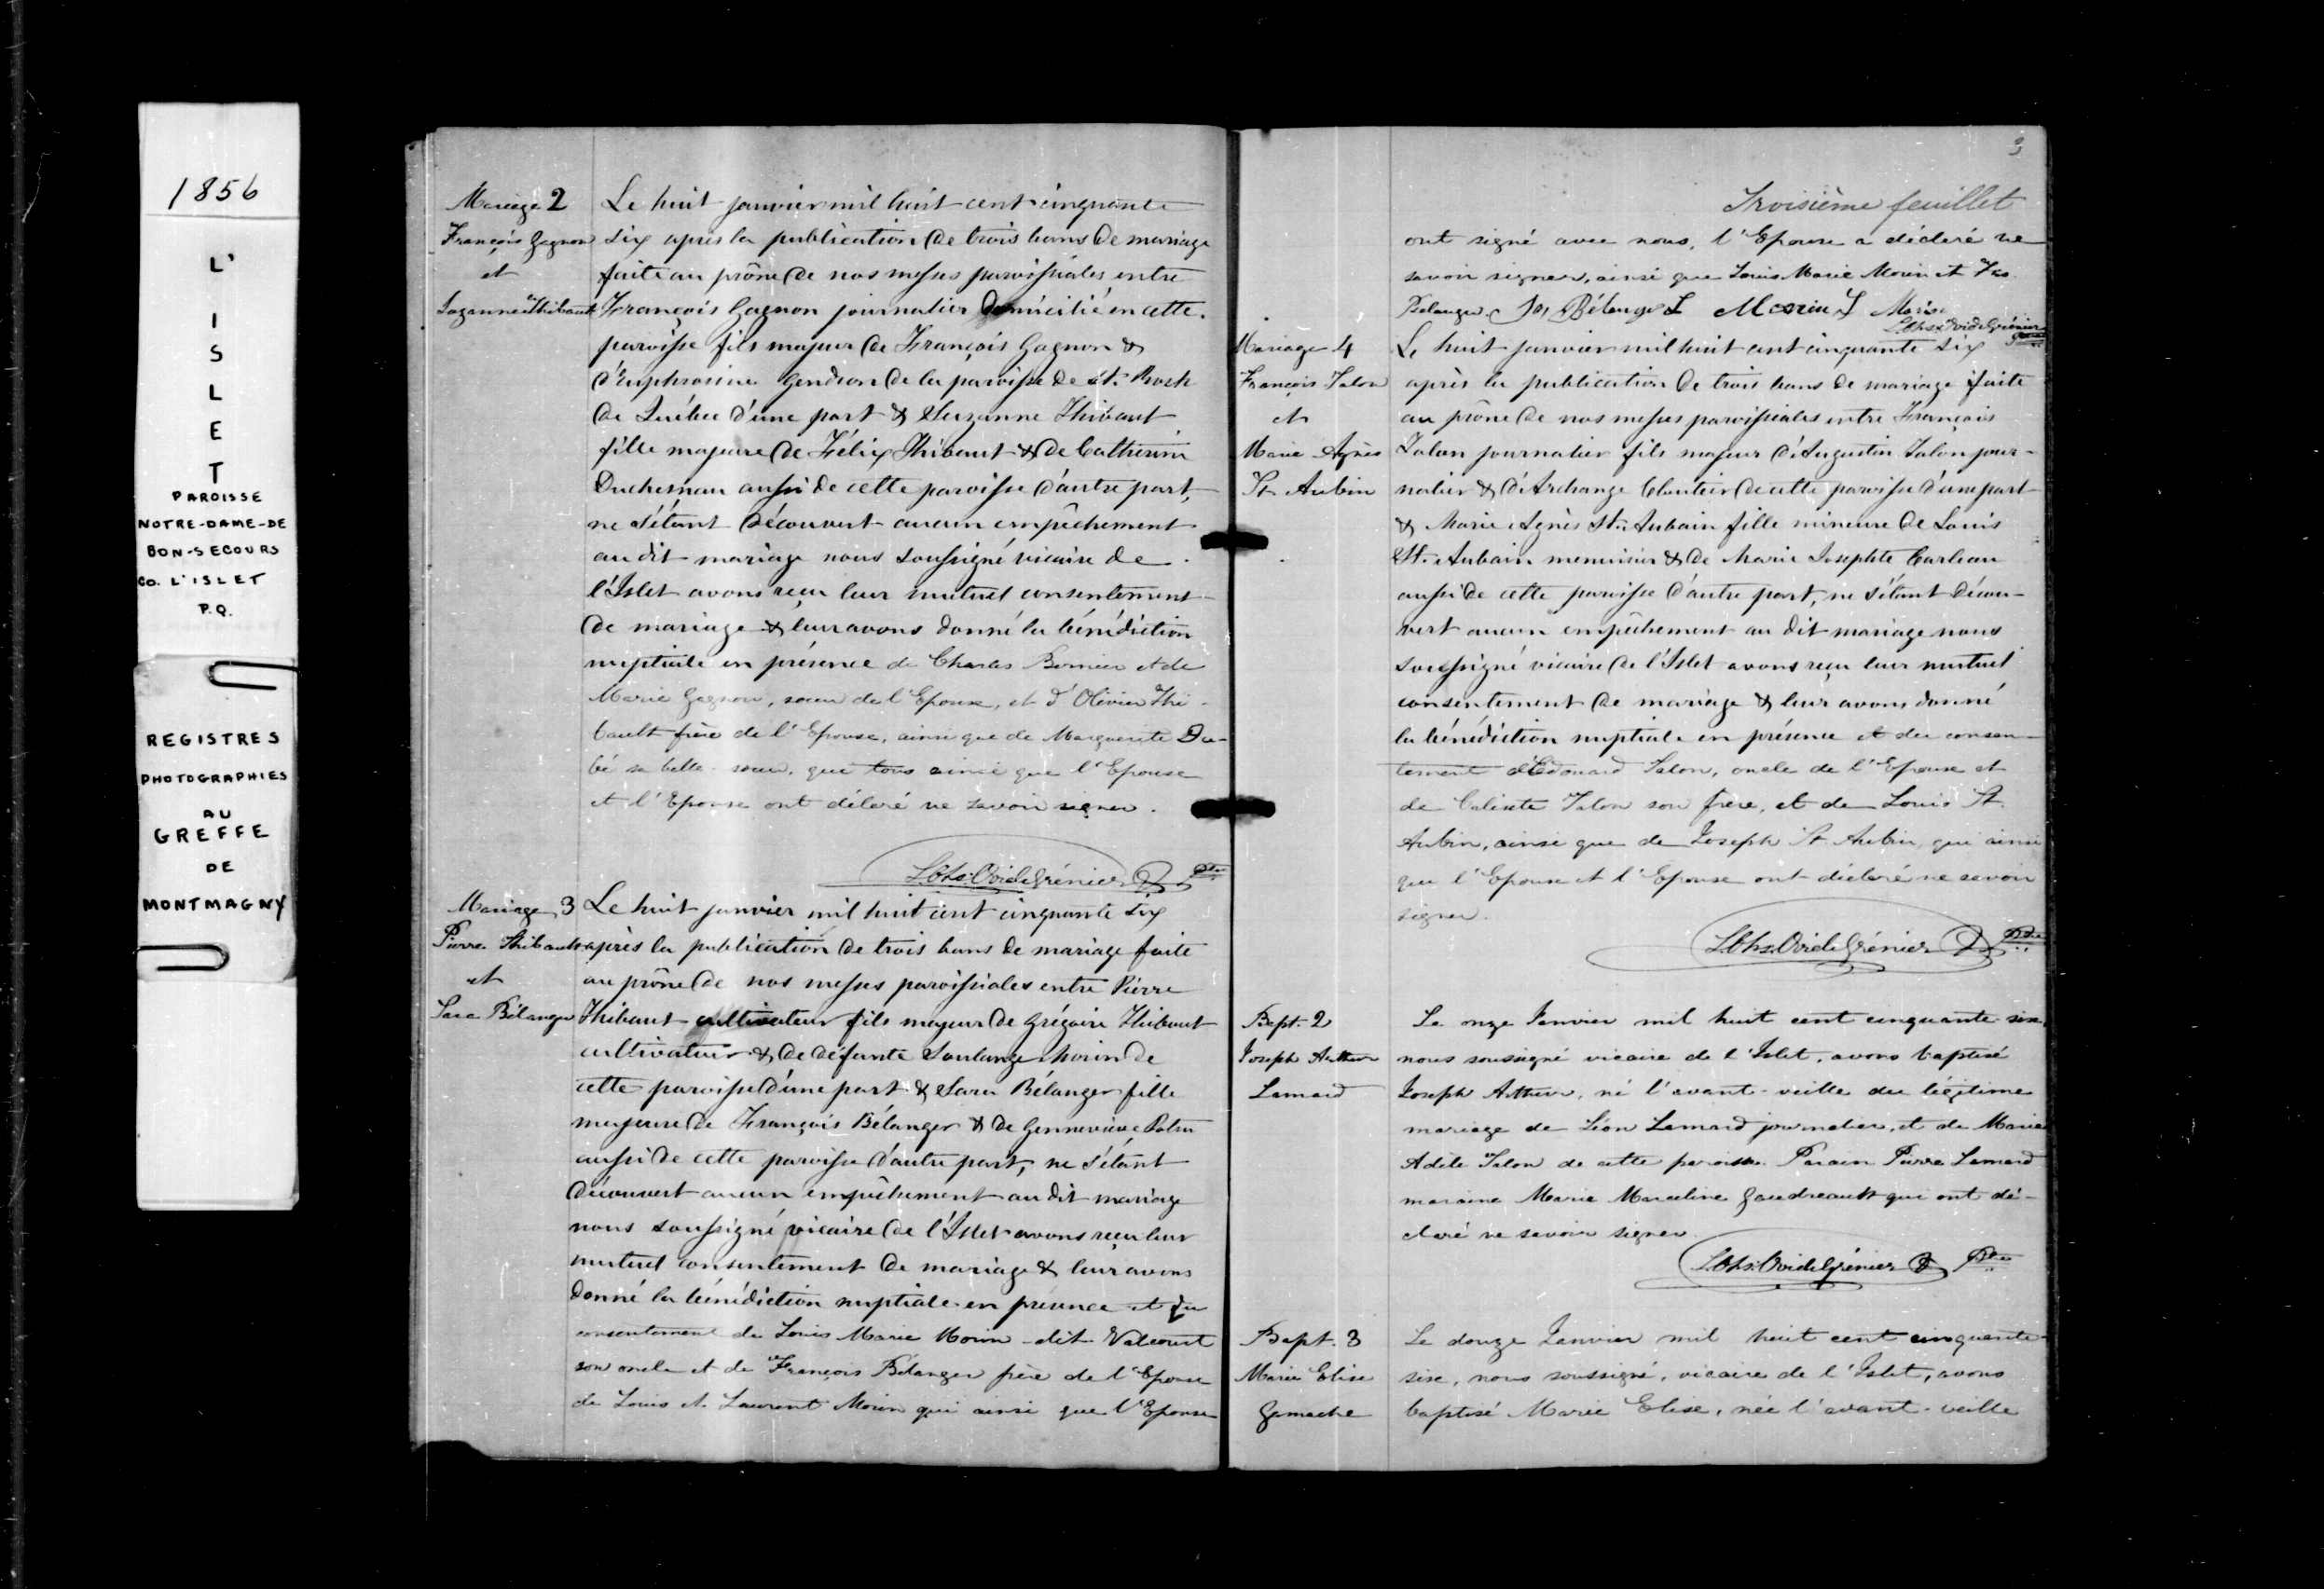 1856
L'
I
S
L
E
T
PAROISSE
NOTRE-DAME-DE
BON-SECOURS
CO. L'ISLET
P.Q.
REGISTRES
PHOTOGRAPHIES
AU
GREFFE
DE
MONTMAGNY
Mariage 2
François Gagnon
et
Suzanne Thibault
Le huit janvier mil huit cent cinquante
six après la publication de trois bans de mariage
faite au prône de nos messes paroissiales entre
François Gagnon journalier domicilié en cette
paroisse fils majeur de François Gagnon &
d'Euphrosine Gendron de la paroisse de St. Roch
de Québec d'une part & Suzanne Thibaut
fille majeure de Félix Thibaut & de Catherine
Duchesneau aussi de cette paroisse d'autre part,
ne s'étant découvert aucun empêchement
au dit mariage nous soussigné vicaire de
l'Islet avons reçu leur mutuel consentement
de mariage & leur avons donné la bénédiction
nuptiale en présence de Charles Bernier et de
Marie Gagnon, soeur de l'Epoux, et d'Olivier Thi-
bault frère de l'Epouse, ainsi que de Marguerite Du-
bé sa belle-soeur, que tous ainsi que l'Epouse
et l'Epoux ont déclaré ne savoir signer.
L. Chs. Ovide Grénier Ptre
Mariage 3
Pierre Thibault
et
Sara Bélanger
Le huit janvier mil huit cent cinquante six
après la publication de trois bans de mariage faite
au prône de nos messes paroissiales entre Pierre
Thibaut cultivateur fils majeur de Grégoire Thibaut
cultivateur & de défunte Soulange Morin de
cette paroisse d'une part & Sara Bélanger fille
majeure de François Bélanger & de Gennevieve
aussi de cette paroisse d'autre part, ne s'étant
découvert aucun empêchement au dit mariage
nous soussigné vicaire de l'Islet avons reçu leur
mutuel consentement de mariage & leur avons
donné la bénédiction nuptiale en présence et du
consentement de Louis Marie Morin dit Valcourt
son oncle et de François Bélanger père de l'Epouse
de Louis et Laurent Morin qui ainsi que l'Epoux
3
Troisième feuillet
ont signé avec nous, l'Epouse a déclaré ne
savoir signer, ainsi que Louis Marie Morin et Frs
Bélanger. Bélanger L Morin L Morin
L. Chs. Ovide Grénier Ptre
Mariage 4
François Talon
et
Marie Agnès
St. Aubin
Le huit janvier mil huit cent cinquante six
après la publication de trois bans de mariage faite
au prône de nos messes paroissiales entre François
Talon journalier fils majeur d'Augustin Talon jour-
nalier & d'Archange Cloutier de cette paroisse d'une part
& Marie Agnès St. Aubain fille mineure de Louis
St. Aubain menuisier & de Marie Josephte Carleau
aussi de cette paroisse d'autre part, ne s'étant décou-
vert aucun empêchement au dit mariage nous
soussigné vicaire de l'Islet avons reçu leur mutuel
consentement de mariage & leur avons donné
la bénédiction nuptiale en présence et du consen-
tement d'Edouard Talon, oncle de l'Epoux et
de Calixte Talon son frère, et de Louis St.
Aubin, ainsi que de Joseph St. Aubin, qui ainsi
que l'Epoux et l'Epouse ont déclaré ne savoir
signer.
L. Chs. Ovide Grénier Ptre
Bapt. 2
Joseph Arthur
Lemard
Le onze Janvier mil huit cent cinquante-six,
nous soussigné vicaire de l'Islet, avons baptisé
Joseph Arthur, né l'avant-veille du légitime
mariage de Léon Lemard journalier, et de Marie
Adèle Talon de cette paroisse. Parain Pierre Lemard
maraine Marie Marceline Gaudreault qui ont dé-
claré ne savoir signer.
L. Chs. Ovide Grénier Ptre
Bapt. 3
Marie Elise
Gamache
Le douze Janvier mil huit cent cinquante-
six, nous soussigné, vicaire de l'Islet, avons
baptisé Marie Elise, née l'avant-veille